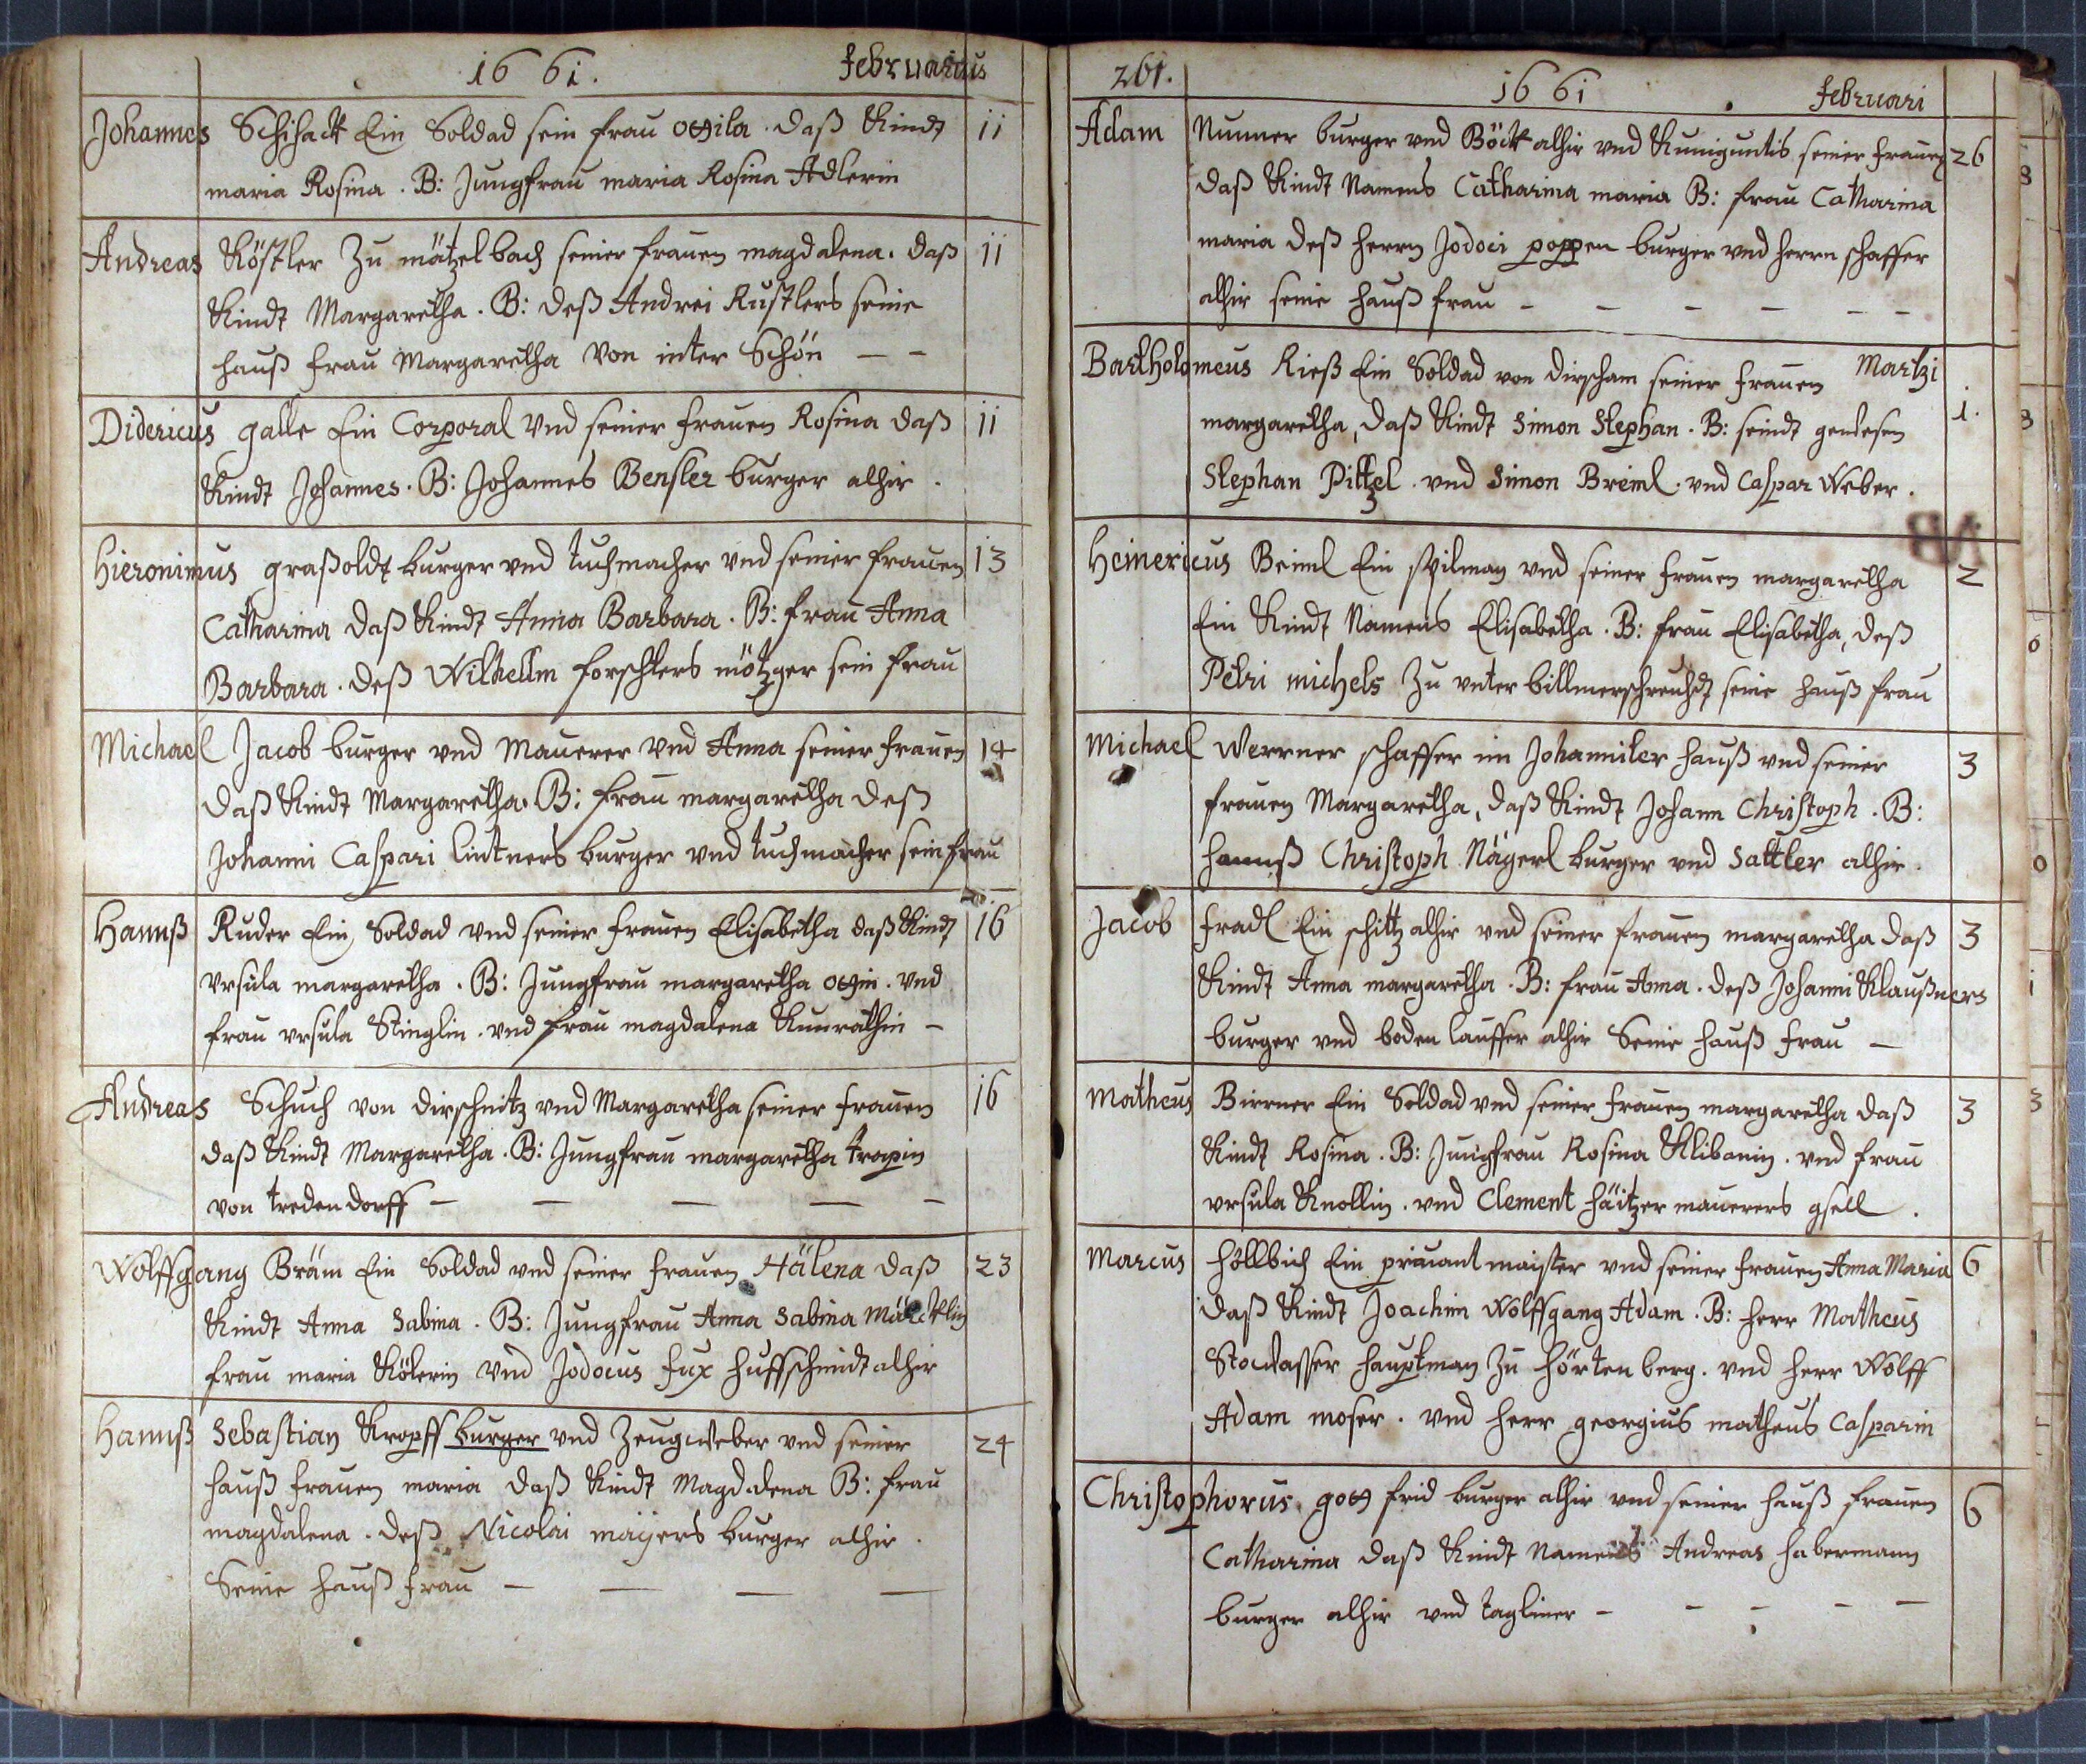 1661. februarius
Johannes Schihack Ein Soldad sein frau Ottila. daß Kindt 11
maria Rosina. B: Jungfrau maria Rosina Adlerin
Andreas Köstler Zu mätzelbach seiner frauen magdalena. daß 11
Kindt Margaretha. B: deß Andrei Kustlers seine
hauß frau Margaretha Von inter Schön — —
Didericus galle Ein Corporal Vnd seiner frauen Rosina daß 11
Kindt Johannes. B: Johannes Bensler burger alhir.
Hieronimus graßoldt burger vnd tuchmacher vnd seiner frauen 13
Catharina daß Kindt Anna Barbara. B: frau Anna
Barbara. deß Wilhellm forschters mötzger sein frau
Michael Jacob burger vnd Mauerer Vnd Anna seiner frauen 14
daß Kindt Margaretha. B: frau margaretha deß
Johanni Caspari lintners burger vnd tuchmacher sein frau
Hannß Ruder Ein Soldad vnd seiner frauen Elisabetha daß Kindt 16
Vrsula margaretha. B: Jungfrau margaretha Ottin. vnd
frau vrsula Stinglin. vnd frau magdalena Kunrathin —
Andreas Schuch von dirschnitz vnd Margaretha seiner frauen 16
daß Kindt Margaretha. B: Jungfrau margaretha trapin
von tredendorff — — — — —
Wolffgang Bräm Ein Soldad vnd seiner frauen Hälena daß 23
Kindt Anna Sabina. B: Jungfrau Anna Sabina
frau maria Kökerin Vnd Jodocus fux huffschmidt alhir
Hannß Sebastian Kropff burger vnd Zeugweber vnd seiner 24
hauß frauen maria daß Kindt Magdalena B: frau
magdalena. deß Nicolai maijers burger alhir.
Seine hauß frau — — — —
261. 1661 februari
Adam Nunner burger vnd Böck alhir vnd Kuniguntis seiner frauen 26
daß Kindt Namens Catharina maria B: frau Catharina
maria deß herrn Jodoci poppen burger vnd herrn schaffer
alhir seine hauß frau — — — — — —
Bartholomeus Rieß Ein Soldad von dirscham seiner frauen Martzi
margaretha, daß Kindt Simon Stephan. B: seindt gewesen 1.
Stephan Pittzel. vnd Simon Breinl. vnd Caspar Weber.
Heinericus Beinl Ein spilman vnd seiner frauen margaretha 2
Ein Kindt Namens Elisabetha. B: frau Elisabetha, deß
Petri michels Zu vnter seine hauß frau
Michael Werrner schaffer im Johanniter hauß vnd seiner 3
frauen Margaretha, daß Kindt Johann Christoph. B:
hannß Christoph Nägerl burger vnd Sattler alhir.
Jacob fradl Ein schittz alhir vnd seiner frauen margaretha daß 3
Kindt Anna margaretha. B: frau Anna. deß Johanni Klaußners
burger vnd boden lauffer alhir Seine hauß frau —
Matheus Birrner Ein Soldad vnd seiner frauen margaretha daß 3
Kindt Rosina. B: Jungfrau Rosina Klibanin. vnd frau
vrsula Knollin. vnd Clement häitzer mauerers gsell.
Marcus höllbich Ein prauant maister vnd seiner frauen Anna Maria 6
daß Kindt Joachim Wolffgang Adam. B: herr Matheus
Stowasser hauptman Zu hörtenberg. vnd herr Wolff
Adam moser. vnd herr georgius matheus Casparin
Christophorus gott frid burger alhir vnd seiner hauß frauen 6
Catharina daß Kindt Namens Andreas habermann
burger alhir vnd tagliner — — — — —